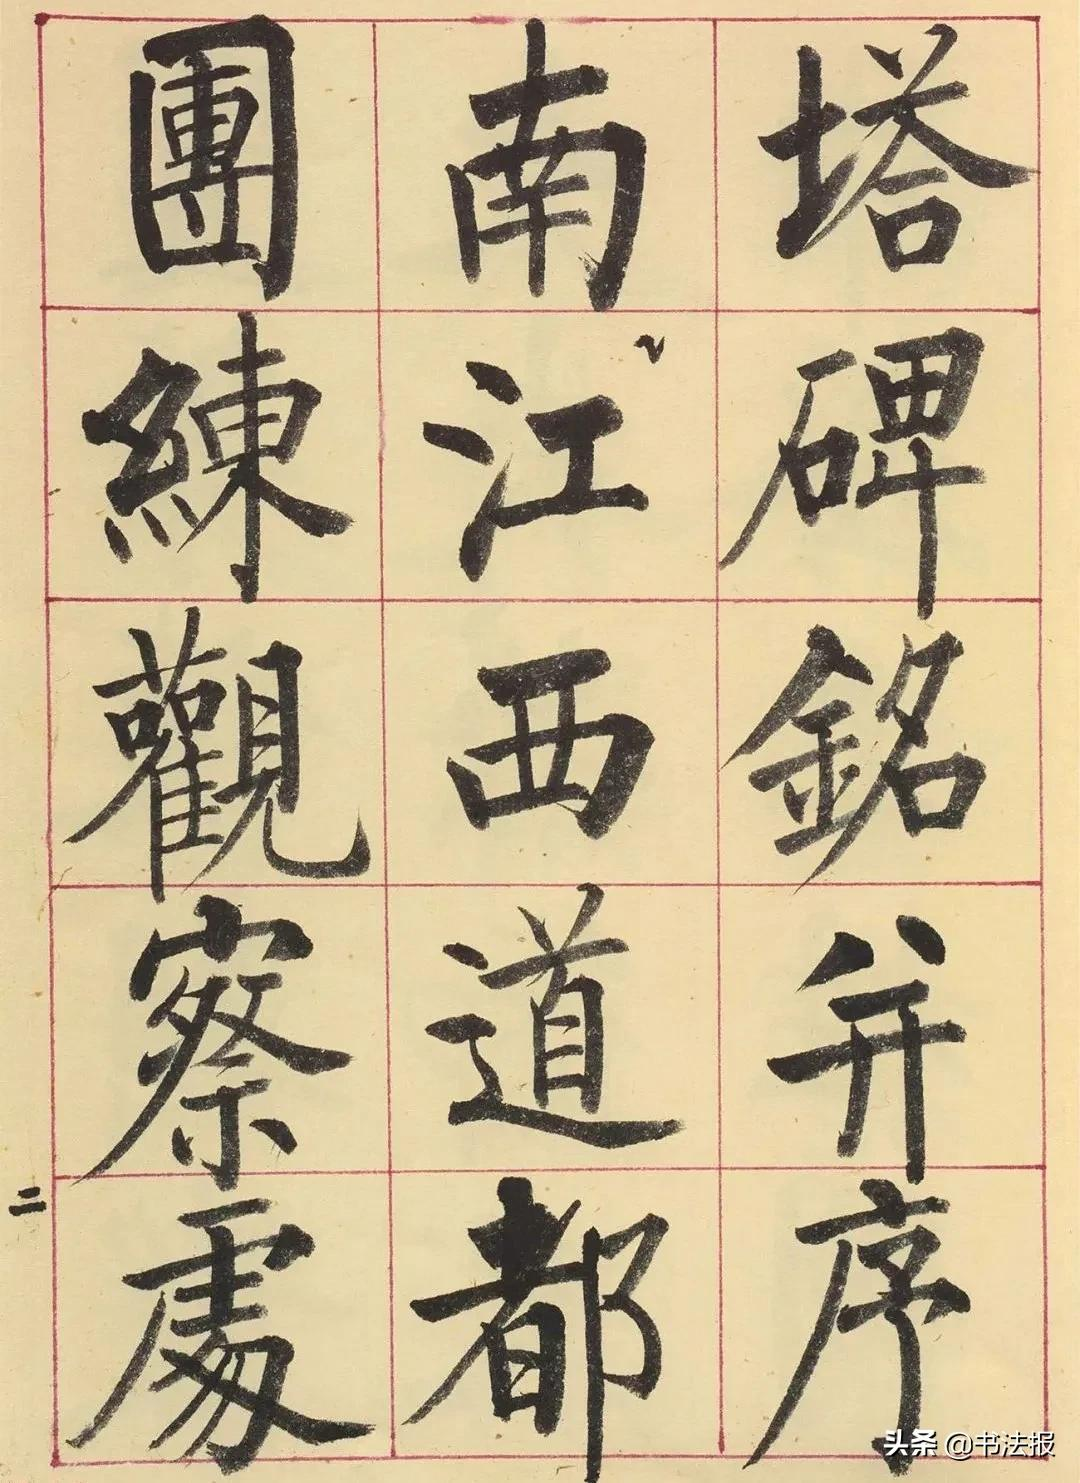 塔碑銘并序
南江西道都
團練觀察處
二
头条 @书法报